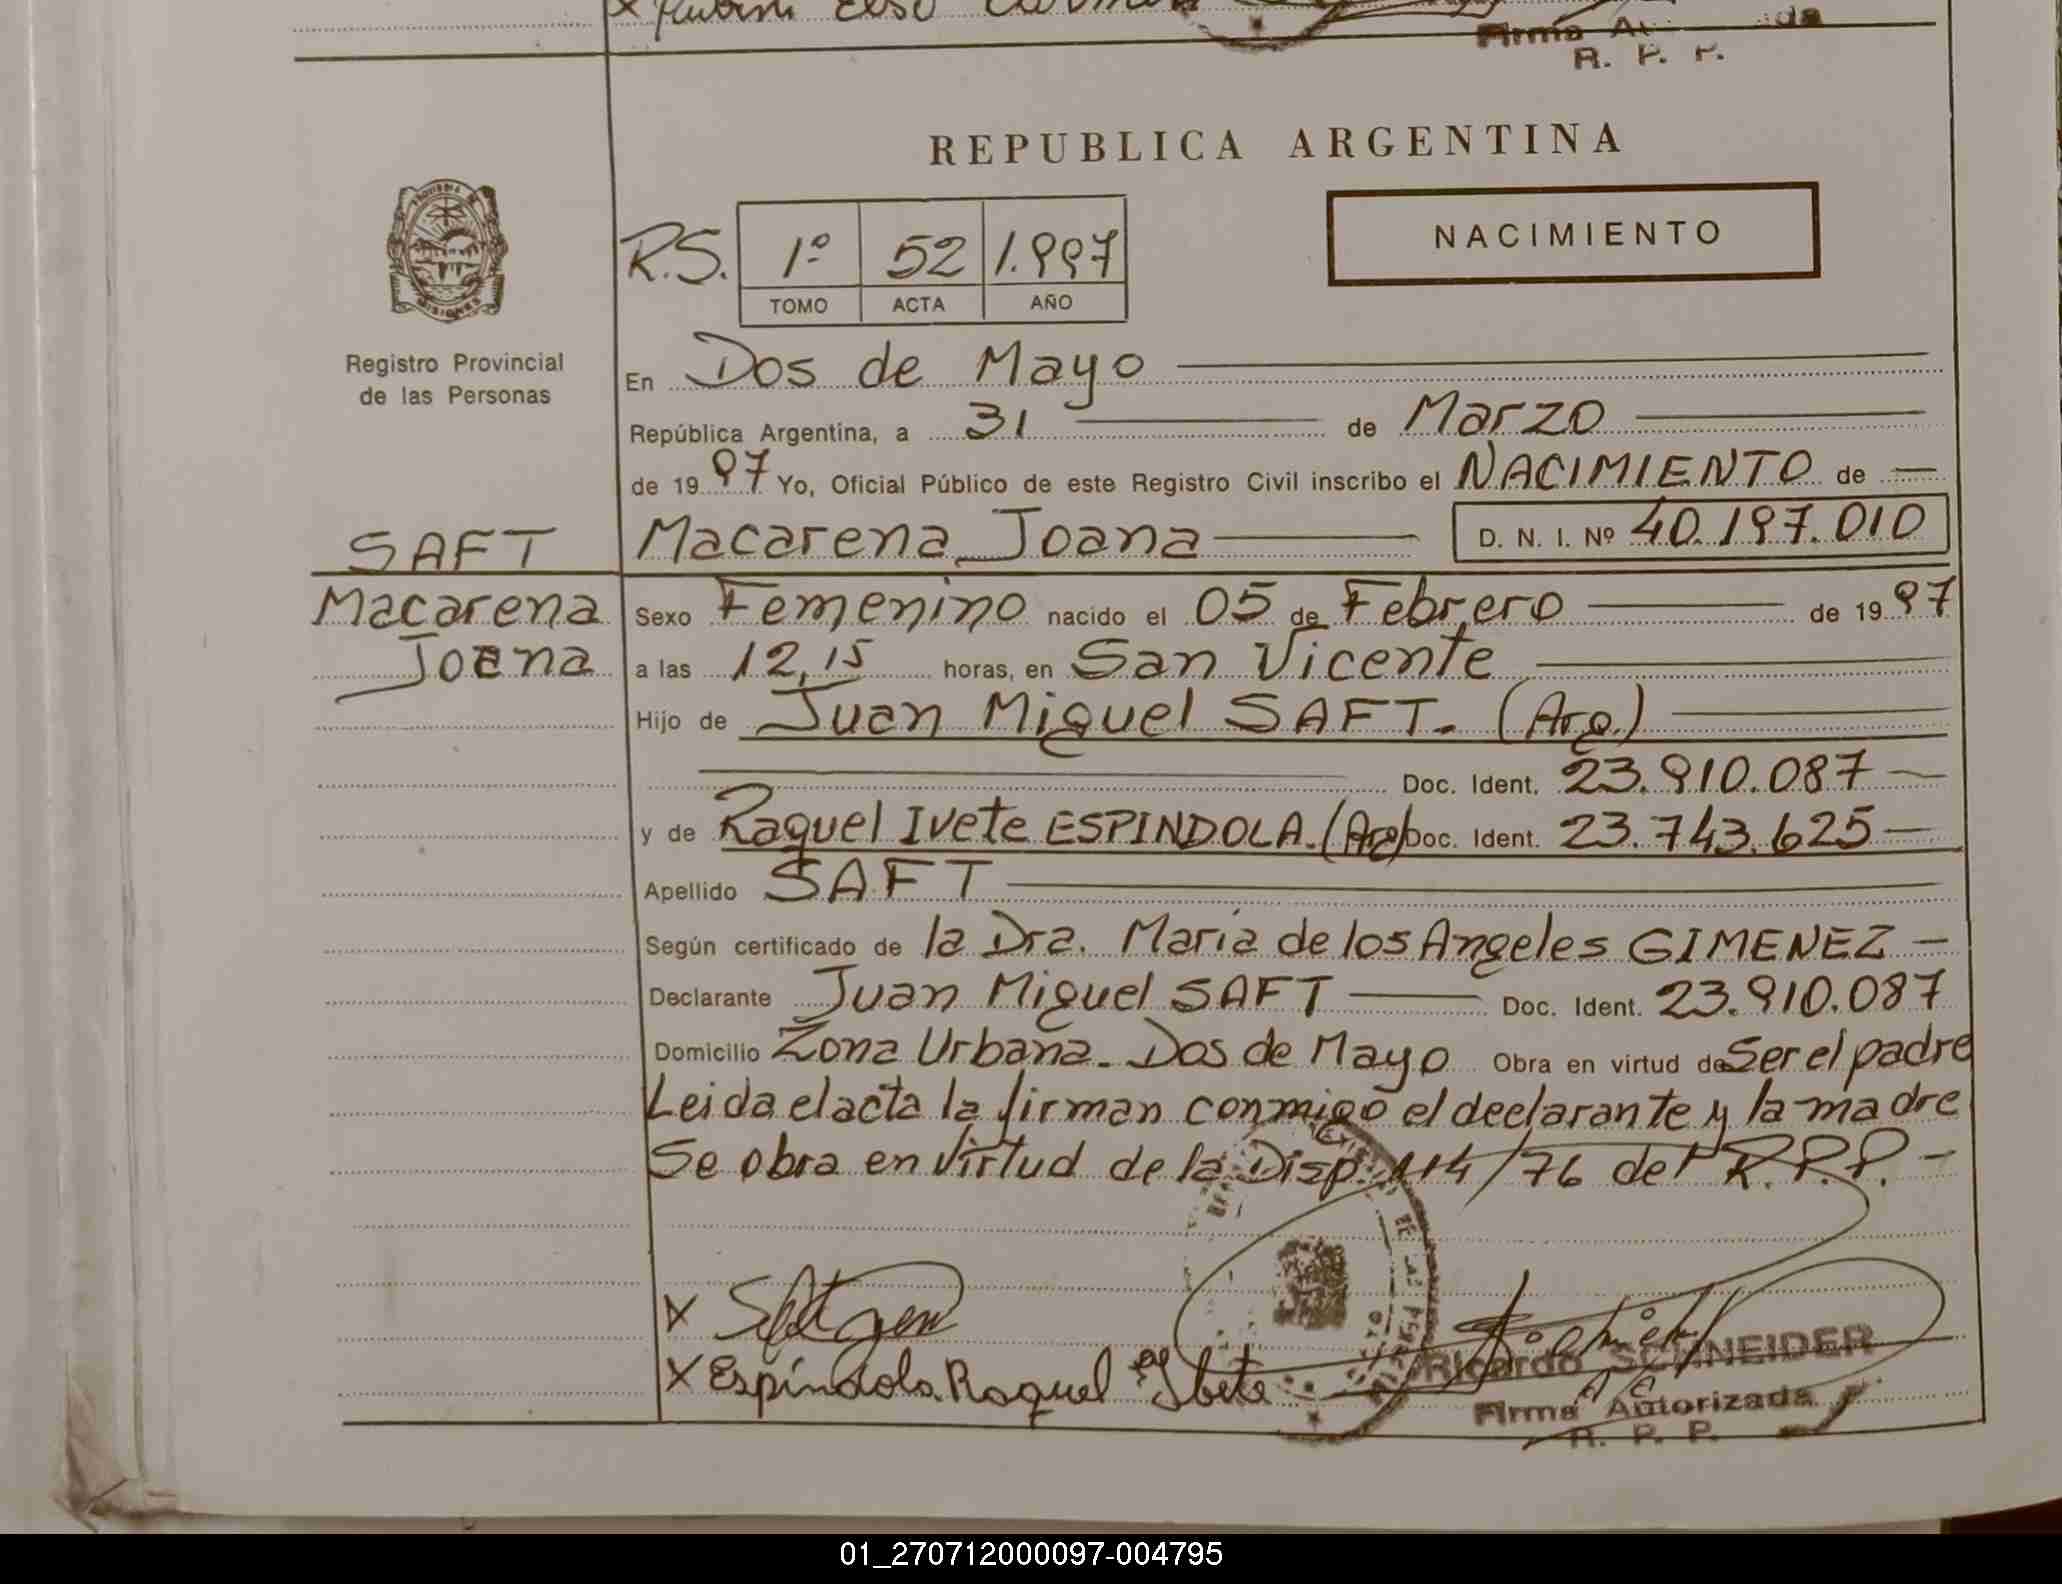 Firma Au   da
R. P. P.
REPUBLICA ARGENTINA
NACIMIENTO
R.S. 1º 52 1.997
TOMO ACTA AÑO
Registro Provincial
de las Personas
En Dos de Mayo
República Argentina, a 31 de Marzo
de 1997 Yo, Oficial Público de este Registro Civil inscribo el NACIMIENTO de
SAFT
Macarena Joana D. N. I. Nº 40.197.010
Macarena
Joana
Sexo Femenino nacido el 05 de Febrero de 1997
a las 12,15 horas, en San Vicente
Hijo de Juan Miguel SAFT. (Arg.)
Doc. Ident. 23.910.087
y de Raquel Ivete ESPINDOLA. (Arg) Doc. Ident. 23.743.625
Apellido SAFT
Según certificado de la Dra. María de los Angeles GIMENEZ
Declarante Juan Miguel SAFT Doc. Ident. 23.910.087
Domicilio Zona Urbana. Dos de Mayo Obra en virtud de Ser el padre
Leida el acta la firman conmigo el declarante y la madre
Se obra en virtud de la Disp. 114/76 del R.P.P. -
X
X Espíndola Raquel Ybete
Ricardo SCHNEIDER
Firma Autorizada
R. P. P.
01_270712000097-004795